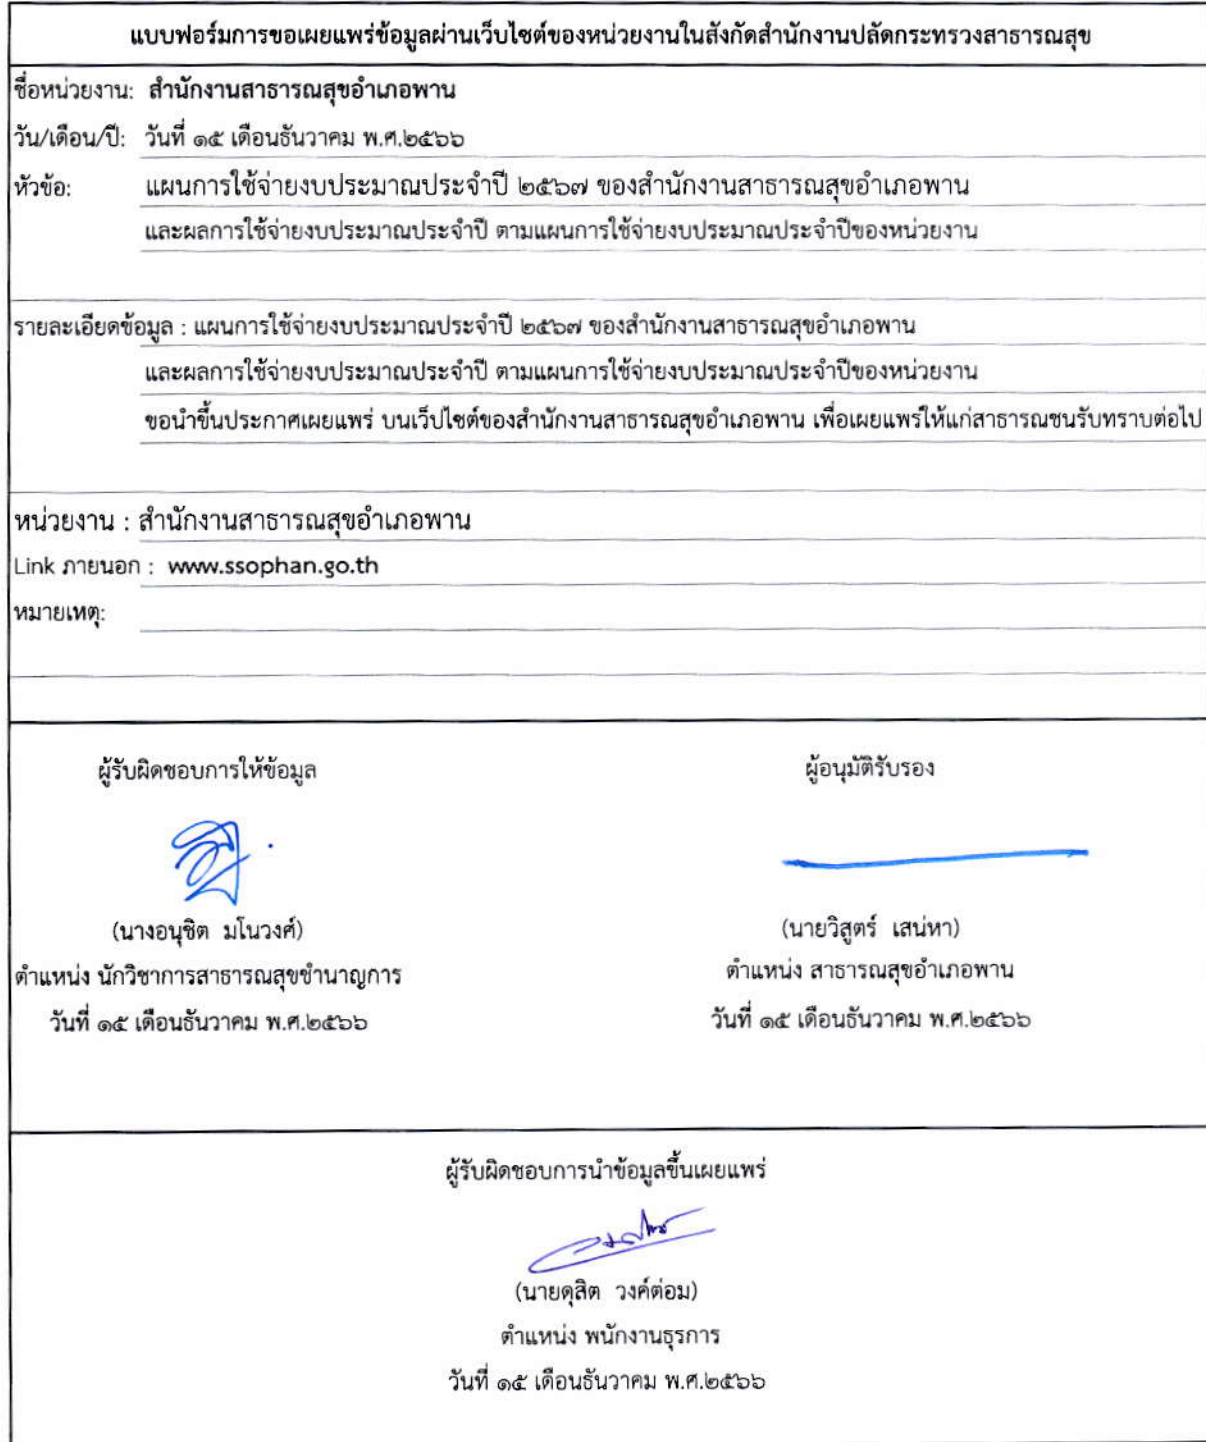 แบบฟอร์มการขอเผยแพร่ข้อมูลผ่านเว็บไซต์ของหน่วยงานในสังกัดสำนักงานปลัดกระทรวงสาธารณสุข
ชื่อหน่วยงาน: สำนักงานสาธารณสุขอำเภอพาน
วัน/เดือน/ปี: วันที่ ๑๕ เดือนธันวาคม พ.ศ.๒๕๖๖
หัวข้อ: แผนการใช้จ่ายงบประมาณประจำปี ๒๕๖๗ ของสำนักงานสาธารณสุขอำเภอพาน
และผลการใช้จ่ายงบประมาณประจำปี ตามแผนการใช้จ่ายงบประมาณประจำปีของหน่วยงาน
รายละเอียดข้อมูล : แผนการใช้จ่ายงบประมาณประจำปี ๒๕๖๗ ของสำนักงานสาธารณสุขอำเภอพาน
และผลการใช้จ่ายงบประมาณประจำปี ตามแผนการใช้จ่ายงบประมาณประจำปีของหน่วยงาน
ขอนำขึ้นประกาศเผยแพร่ บนเว็ปไซต์ของสำนักงานสาธารณสุขอำเภอพาน เพื่อเผยแพร่ให้แก่สาธารณชนรับทราบต่อไป
หน่วยงาน : สำนักงานสาธารณสุขอำเภอพาน
Link ภายนอก : www.ssophan.go.th
หมายเหตุ:
ผู้รับผิดชอบการให้ข้อมูล
(นางอนุชิต มโนวงศ์)
ตำแหน่ง นักวิชาการสาธารณสุขชำนาญการ
วันที่ ๑๕ เดือนธันวาคม พ.ศ.๒๕๖๖
ผู้อนุมัติรับรอง
(นายวิสูตร์ เสน่หา)
ตำแหน่ง สาธารณสุขอำเภอพาน
วันที่ ๑๕ เดือนธันวาคม พ.ศ.๒๕๖๖
ผู้รับผิดชอบการนำข้อมูลขึ้นเผยแพร่
(นายดุสิต วงค์ต่อม)
ตำแหน่ง พนักงานธุรการ
วันที่ ๑๕ เดือนธันวาคม พ.ศ.๒๕๖๖